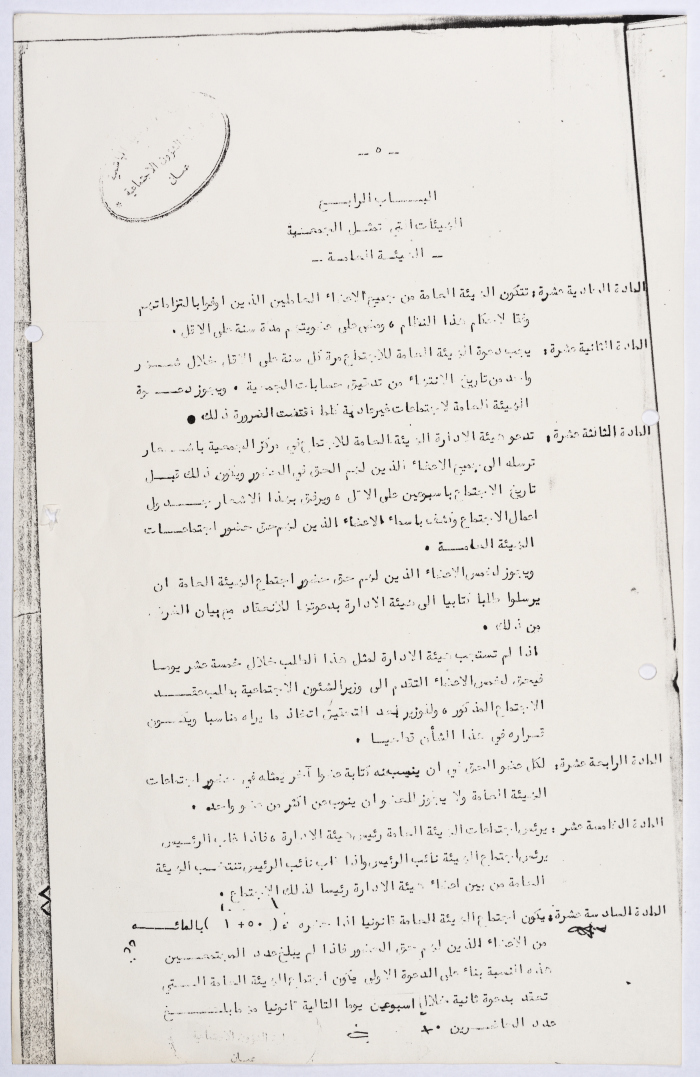 الشؤون الاجتماعية
عمان
- ٥ -
البـــاب الرابــع
الهيئات التي تمثل الجمعـية
- الهيئـة العامـة -
المادة الحادية عشرة: تتكون الهيئة العامة من جميع الاعضاء العاملين الذين اوفوا بالتزاماتهم
وفقا لاحكام هذا النظام ، ومضى على عضويتهم مدة سنة على الاقل .
المادة الثانية عشرة: يجب دعوة الهيئة العامة للاجتماع مرة كل سنة على الاقل خلال شهـــر
واحد من تاريخ الانتهاء من تدقيق حسابات الجمعية . ويجوز دعــوة
الهيئة العامة لاجتماعات غير عادية كلما اقتضت الضرورة ذلك .
المادة الثالثة عشرة: تدعو هيئة الادارة الهيئة العامة للاجتماع في مركز الجمعية باشــعار
ترسله الى جميع الاعضاء الذين لهم الحق في الحضور ويكون ذلك قبــل
تاريخ الاجتماع باسبوعين على الاقل ، ويرفق بهذا الاشعار جـــدول
اعمال الاجتماع وكشف باسماء الاعضاء الذين لهم حق حضور اجتماعــات
الهيئة العامــة .
ويجوز لخمس الاعضاء الذين لهم حق حضور اجتماع الهيئة العامة ان
يرسلوا طلبا كتابيا الى هيئة الادارة بدعوتها للانعقاد مع بيان الغرض
من ذلك .
اذا لم تستجب هيئة الادارة لمثل هذا الطلب خلال خمسة عشر يومـا
فيحق لخمس الاعضاء التقدم الى وزير الشئون الاجتماعية بطلب عقـــد
الاجتماع المذكور ، وللوزير بعد التحقيق اتخاذ ما يراه مناسبا ويكــون
قراره في هذا الشأن قطعيـا .
المادة الرابعة عشرة: لكل عضو الحق في ان ينيب عنه كتابة عضوا آخر يمثله في حضور اجتماعات
الهيئة العامة ولا يجوز للعضو ان ينوب عن اكثر من عضو واحد .
المادة الخامسة عشر : يرئس اجتماعات الهيئة العامة رئيس هيئة الادارة ، فاذا غاب الرئيـس
يرئس اجتماع الهيئة نائب الرئيس واذا غاب نائب الرئيس تنتخـب الهيئة
العامة من بين اعضاء هيئة الادارة رئيسا لذلك الاجتماع .
المادة السادسة عشرة: يكون اجتماع الهيئة العامة قانونيا اذا حضره ( ٥٠ + ١ ) بالمائـــه
من الاعضاء الذين لهم حق الحضور فاذا لم يبلغ عدد المجتمعــين
هذه النسبة بناء على الدعوة الاولى يكون اجتماع الهيئة العامة الــتي
تعقد بدعوة ثانية خلال اسبوعين يوما التالية قانونيا مهما بلــــغ
عدد الحاضــرين
عمان